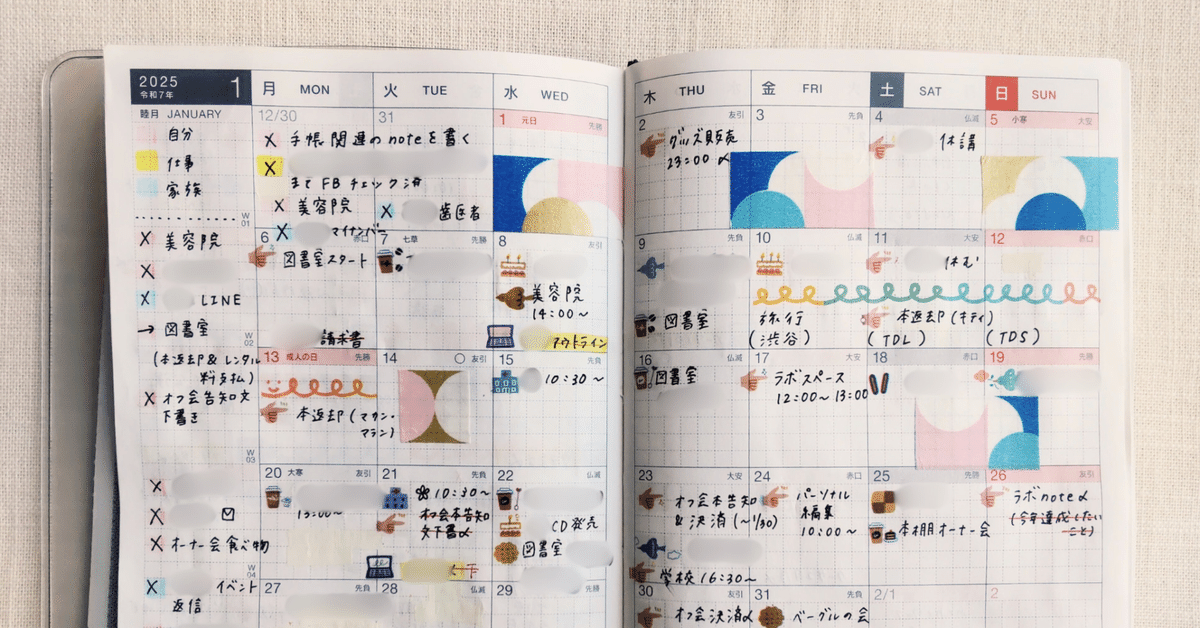 2025
令和7年
1
月 MON
火 TUE
水 WED
木 THU
金 FRI
土 SAT
日 SUN
睦月 JANUARY
自分
仕事
家族
W
01
X 美容院
X
X LINE
→ 図書室
(本返却&レンタル
料支払)
W
02
X オフ会告知文
下書き
W
03
X
X
X オーナー会食べ物
W
04
X イベント
返信
12/30
31
X 手帳関連のnoteを書く
X
まで FBチェック済
X 美容院
X マイナンバー
X 歯医者
1 元日 先勝
2 友引
グッズ販売
23:00〆
3 先負
4 仏滅
休講
5 小寒 大安
6 赤口
図書室スタート
請求書
7 七草 先勝
8 友引
美容院
14:00～
アウトライン
9 先負
図書室
10 仏滅
旅行
(渋谷)
11 大安
休む
本返却(キティ)
(TDL)
12 赤口
(TDS)
13 成人の日 先勝
本返却(マカン・
マラン)
14 友引
15 先負
10:30～
16 仏滅
図書室
17 大安
ラボスペース
12:00～13:00
18 赤口
19 先勝
20 大寒 友引
13:00～
21 先負
10:30～
オフ会本告知
文下書〆
22 仏滅
CD発売
図書室
23 大安
オフ会本告知
&決済(～1/30)
学校16:30～
24 赤口
パーソナル
編集
10:00～
25 先勝
本棚オーナー会
26 友引
ラボnote〆
(今年達成したい
こと)
27 先負
28 仏滅
29 先勝
30 友引
オフ会決済〆
31 先負
ベーグルの会
2/1
2